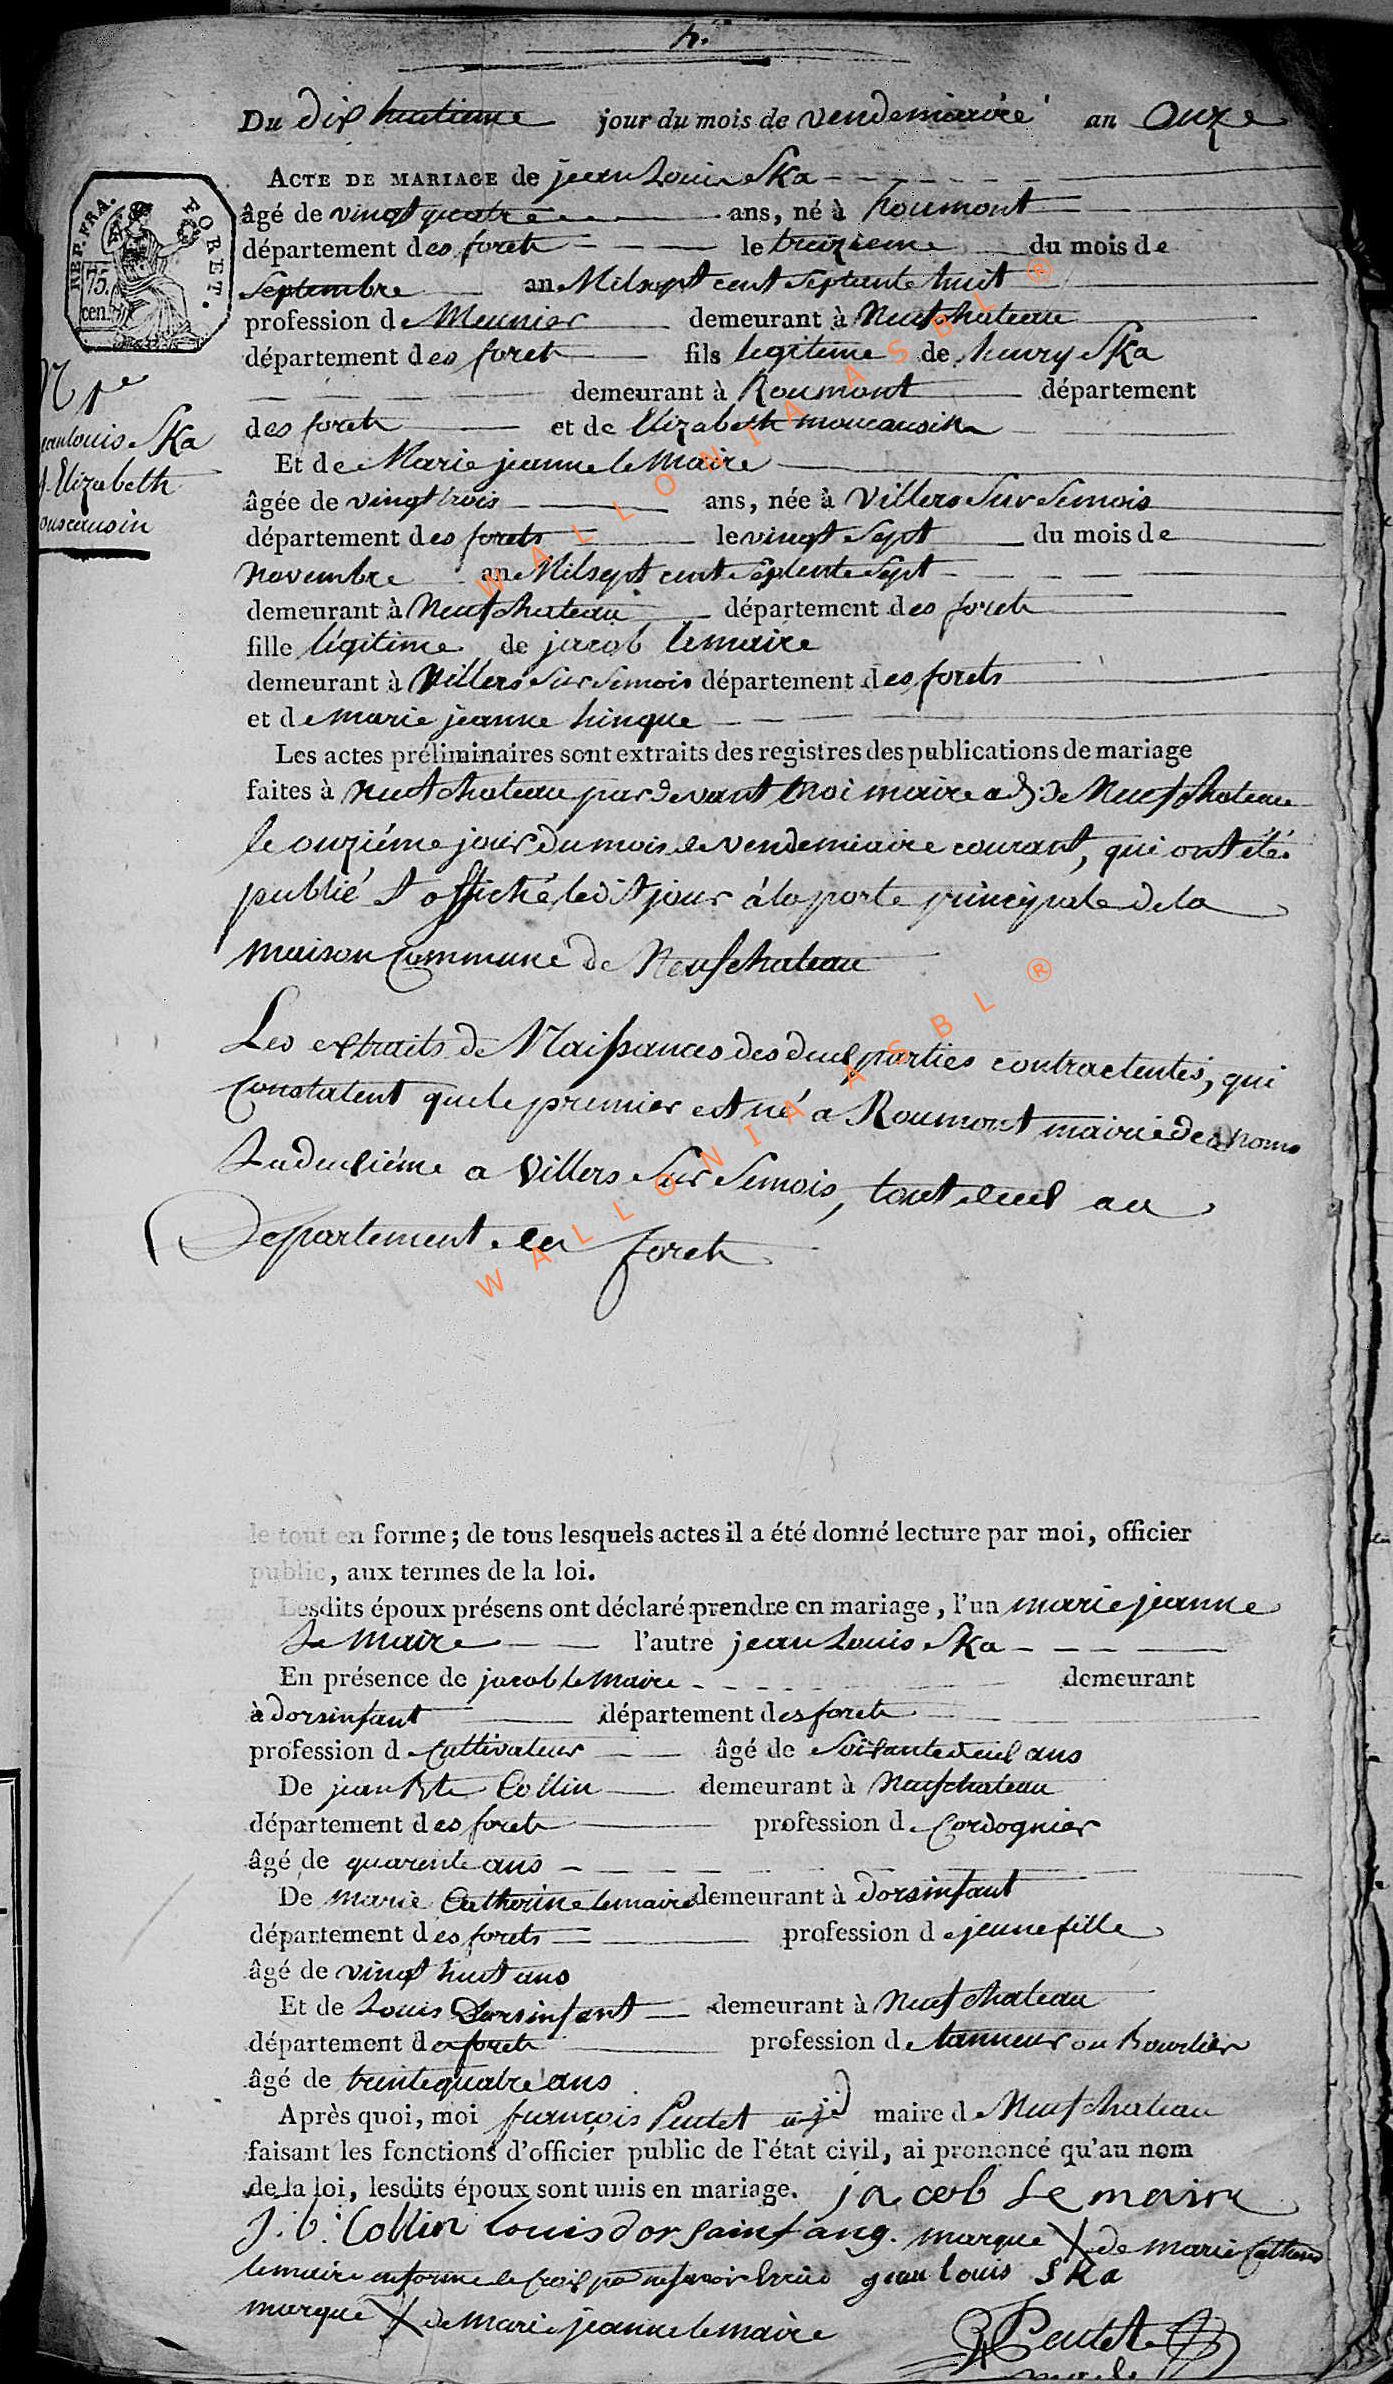 4.
Du dix huitieme jour du mois de vendemiaire an Onze
ACTE DE MARIAGE de jean Louis Ska
REP. FRA. FORET.
75. cen.
âgé de vingt quatre ans, né à Roumont
département des foret le treizieme du mois de
Septembre an Mil sept cent septante huit
profession de Meunier demeurant à Neufchateau
département des foret fils legitime de henry Ska
demeurant à Roumont département
des foret et de Elizabeth moucausin
jeanlouis Ska
Elizabeth
Et de Marie jeanne le Maire
âgée de vingt trois ans, née à Villers Sur Semois
département des forets le vingt Sept du mois de
novembre an Mil sept cent septente sept
demeurant à Neufchateau département des foret
fille légitime de jacob lemaire
demeurant à Villers Sur Semois département des forets
et de marie jeanne hinque
Les actes préliminaires sont extraits des registres des publications de mariage
faites à neufchateau pardevant moi maire adj. de Neufchateau
le onziéme jour du mois de vendemiaire courant, qui ont été
publié et affiché ledit jour á la porte principale de la
maison Commune de Neufchateau
Les extraits de Naissances des deux parties contractentes, qui
Constatent que le premier est né a Roumont mairie de
La deuxiéme a Villers Sur Semois, tout deux au
Departement des foret
le tout en forme; de tous lesquels actes il a été donné lecture par moi, officier
public, aux termes de la loi.
Lesdits époux présens ont déclaré prendre en mariage, l'un marie jeanne
Le Maire l'autre jean Louis Ska
En présence de jacob le Maire demeurant
à dorsinfant département des foret
profession d Cultivateur âgé de Soixante deux ans
De jean Bte Collin demeurant à Neufchateau
département des foret profession d Cordognier
âgé de quarente ans
De marie Catherine lemaire demeurant à dorsinfant
département des forets profession de jeune fille
âgé de vingt huit ans
Et de Louis Dorsinfant demeurant à Neufchateau
département des foret profession de tanneur ou Bourlier
âgé de trente quatre ans
Après quoi, moi françois Peutet adj. maire d Neufchateau
faisant les fonctions d'officier public de l'état civil, ai prononcé qu'au nom
de la loi, lesdits époux sont unis en mariage. jacob Le maire
J. b. Collin Louis dorsainfang. marque X de marie
lemaire en forme de croix pour ne savoir gean louis Ska
marque X de marie jeanne lemaire
Peutet
WALLONIA ASBL ®
WALLONIA ASBL ®